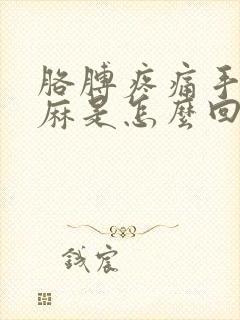 胳膊疼痛手
麻是怎麼回
錢宸